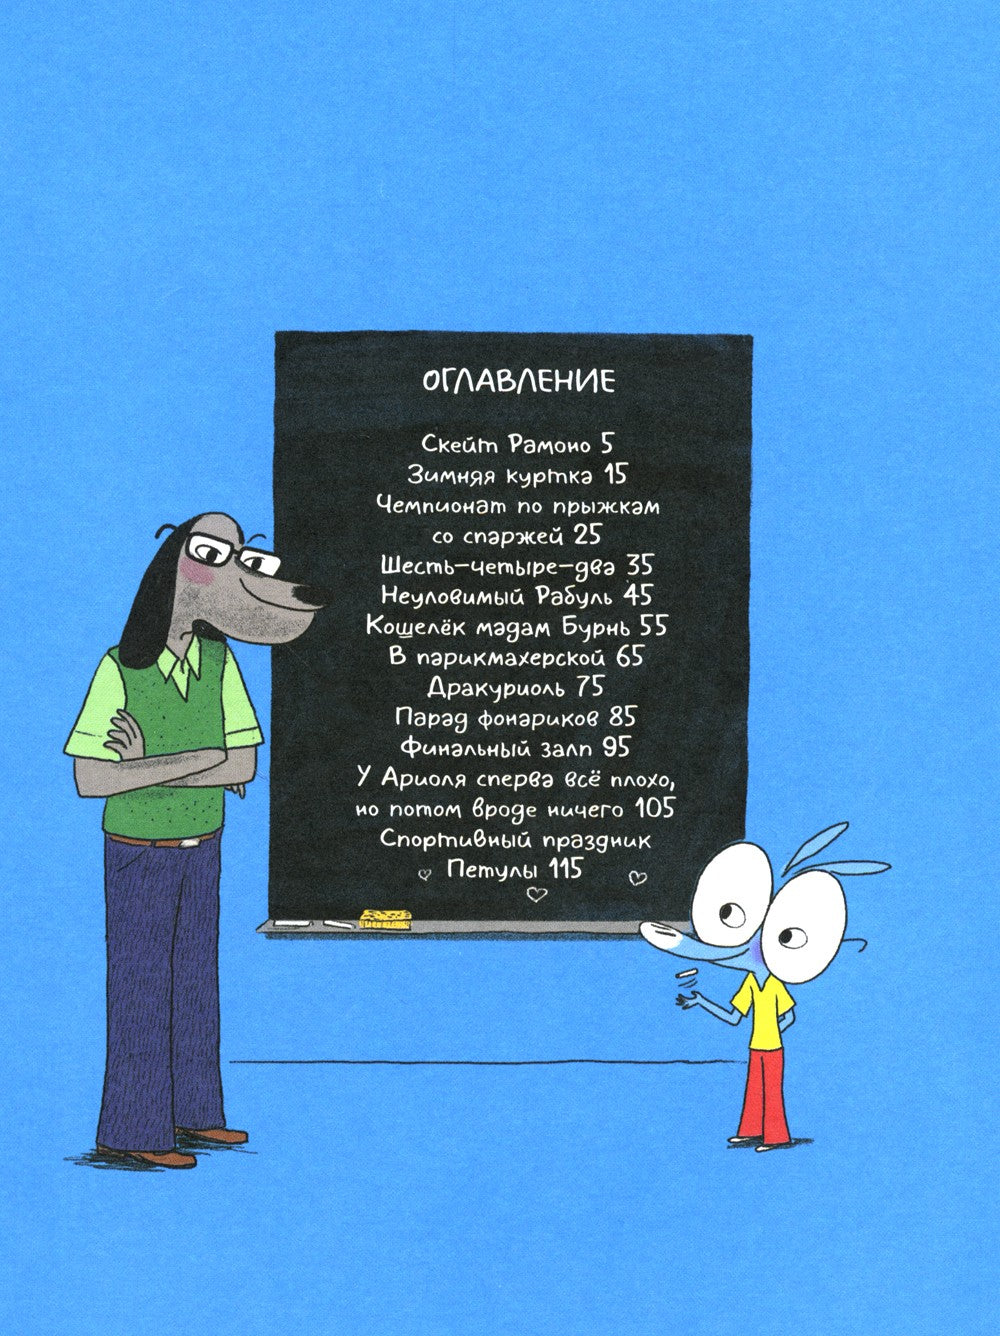 ОГЛАВЛЕНИЕ
Скейт Рамоно 5
Зимняя куртка 15
Чемпионат по прыжкам
со спаржей 25
Шесть-четыре-два 35
Неуловимый Рабуль 45
Кошелёк мадам Бурнь 55
В парикмахерской 65
Дракуриоль 75
Парад фонариков 85
Финальный залп 95
У Ариоля сперва всё плохо,
но потом вроде ничего 105
Спортивный праздник
Петулы 115